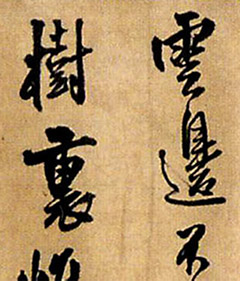 雲邊不
樹裏